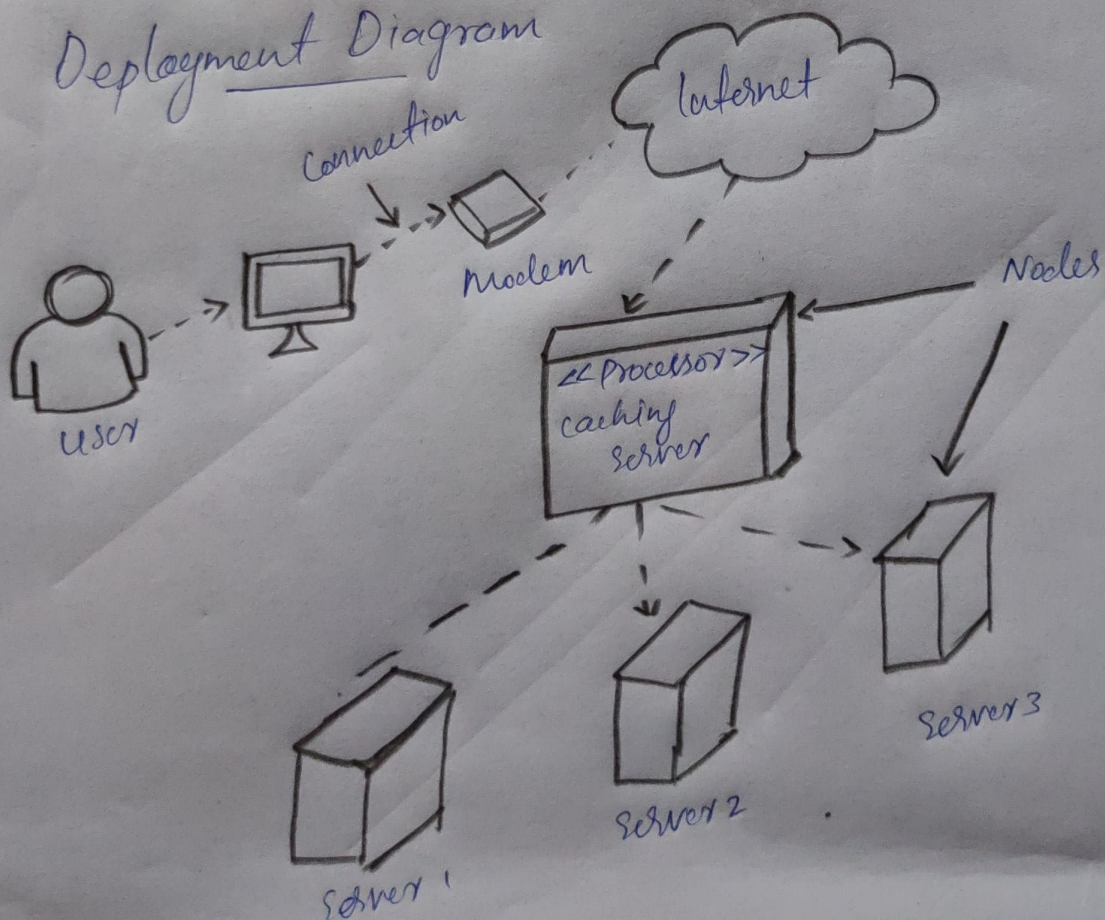 Deployment Diagram
Internet
Connection
Modem
Nodes
User
<<Processor>>
caching
server
Server 3
Server 2
Server 1